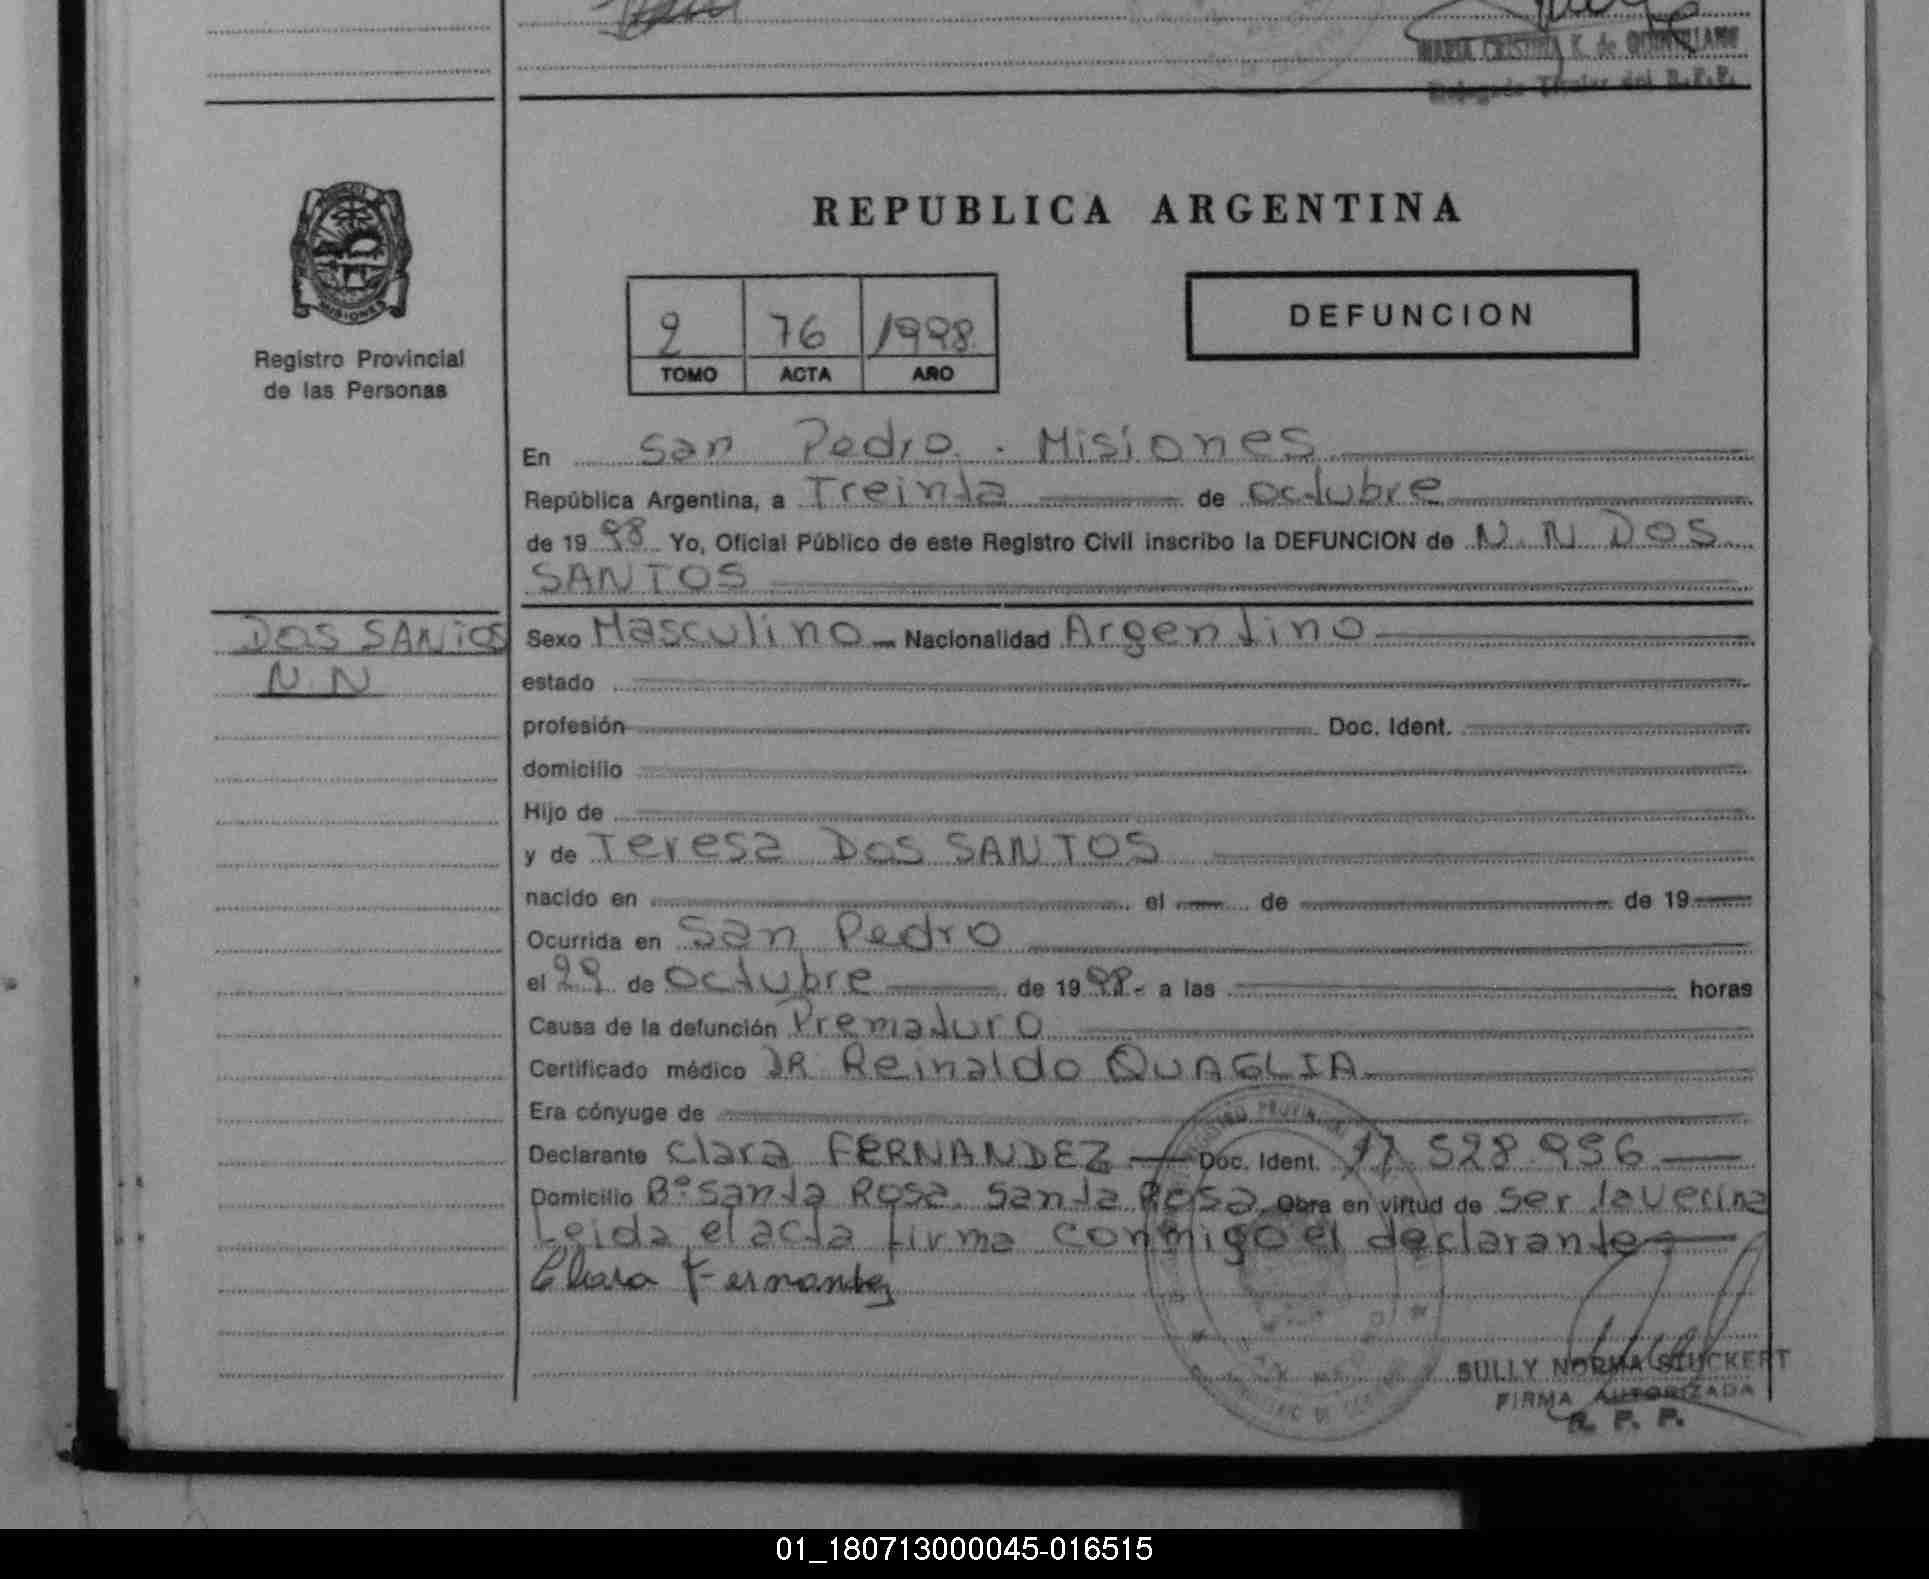 MARIA CRISTINA K. de QUINTILLANO
Delegada Titular del R.P.P.
MISIONES
Registro Provincial
de las Personas
REPUBLICA ARGENTINA
2 76 1998
TOMO ACTA AÑO
DEFUNCION
En San Pedro - Misiones
República Argentina, a Treinta de octubre
de 1998 Yo, Oficial Público de este Registro Civil inscribo la DEFUNCION de N.N DOS
SANTOS
DOS SANTOS
N.N
Sexo Masculino Nacionalidad Argentino
estado
profesión Doc. Ident.
domicilio
Hijo de
y de Teresa DOS SANTOS
nacido en el de de 19
Ocurrida en San Pedro
el 29 de octubre de 1998 - a las horas
Causa de la defunción Prematuro
Certificado médico DR Reinaldo QUAGLIA
Era cónyuge de
Declarante Clara FERNANDEZ Doc. Ident. 17.528.956
Domicilio Bº Santa Rosa. Santa Rosa Obra en virtud de ser la vecina
Leida el acta firma conmigo el declarante
Clara Fernandez
SULLY NORMA STUCKERT
FIRMA AUTORIZADA
R. P. P.
01_180713000045-016515